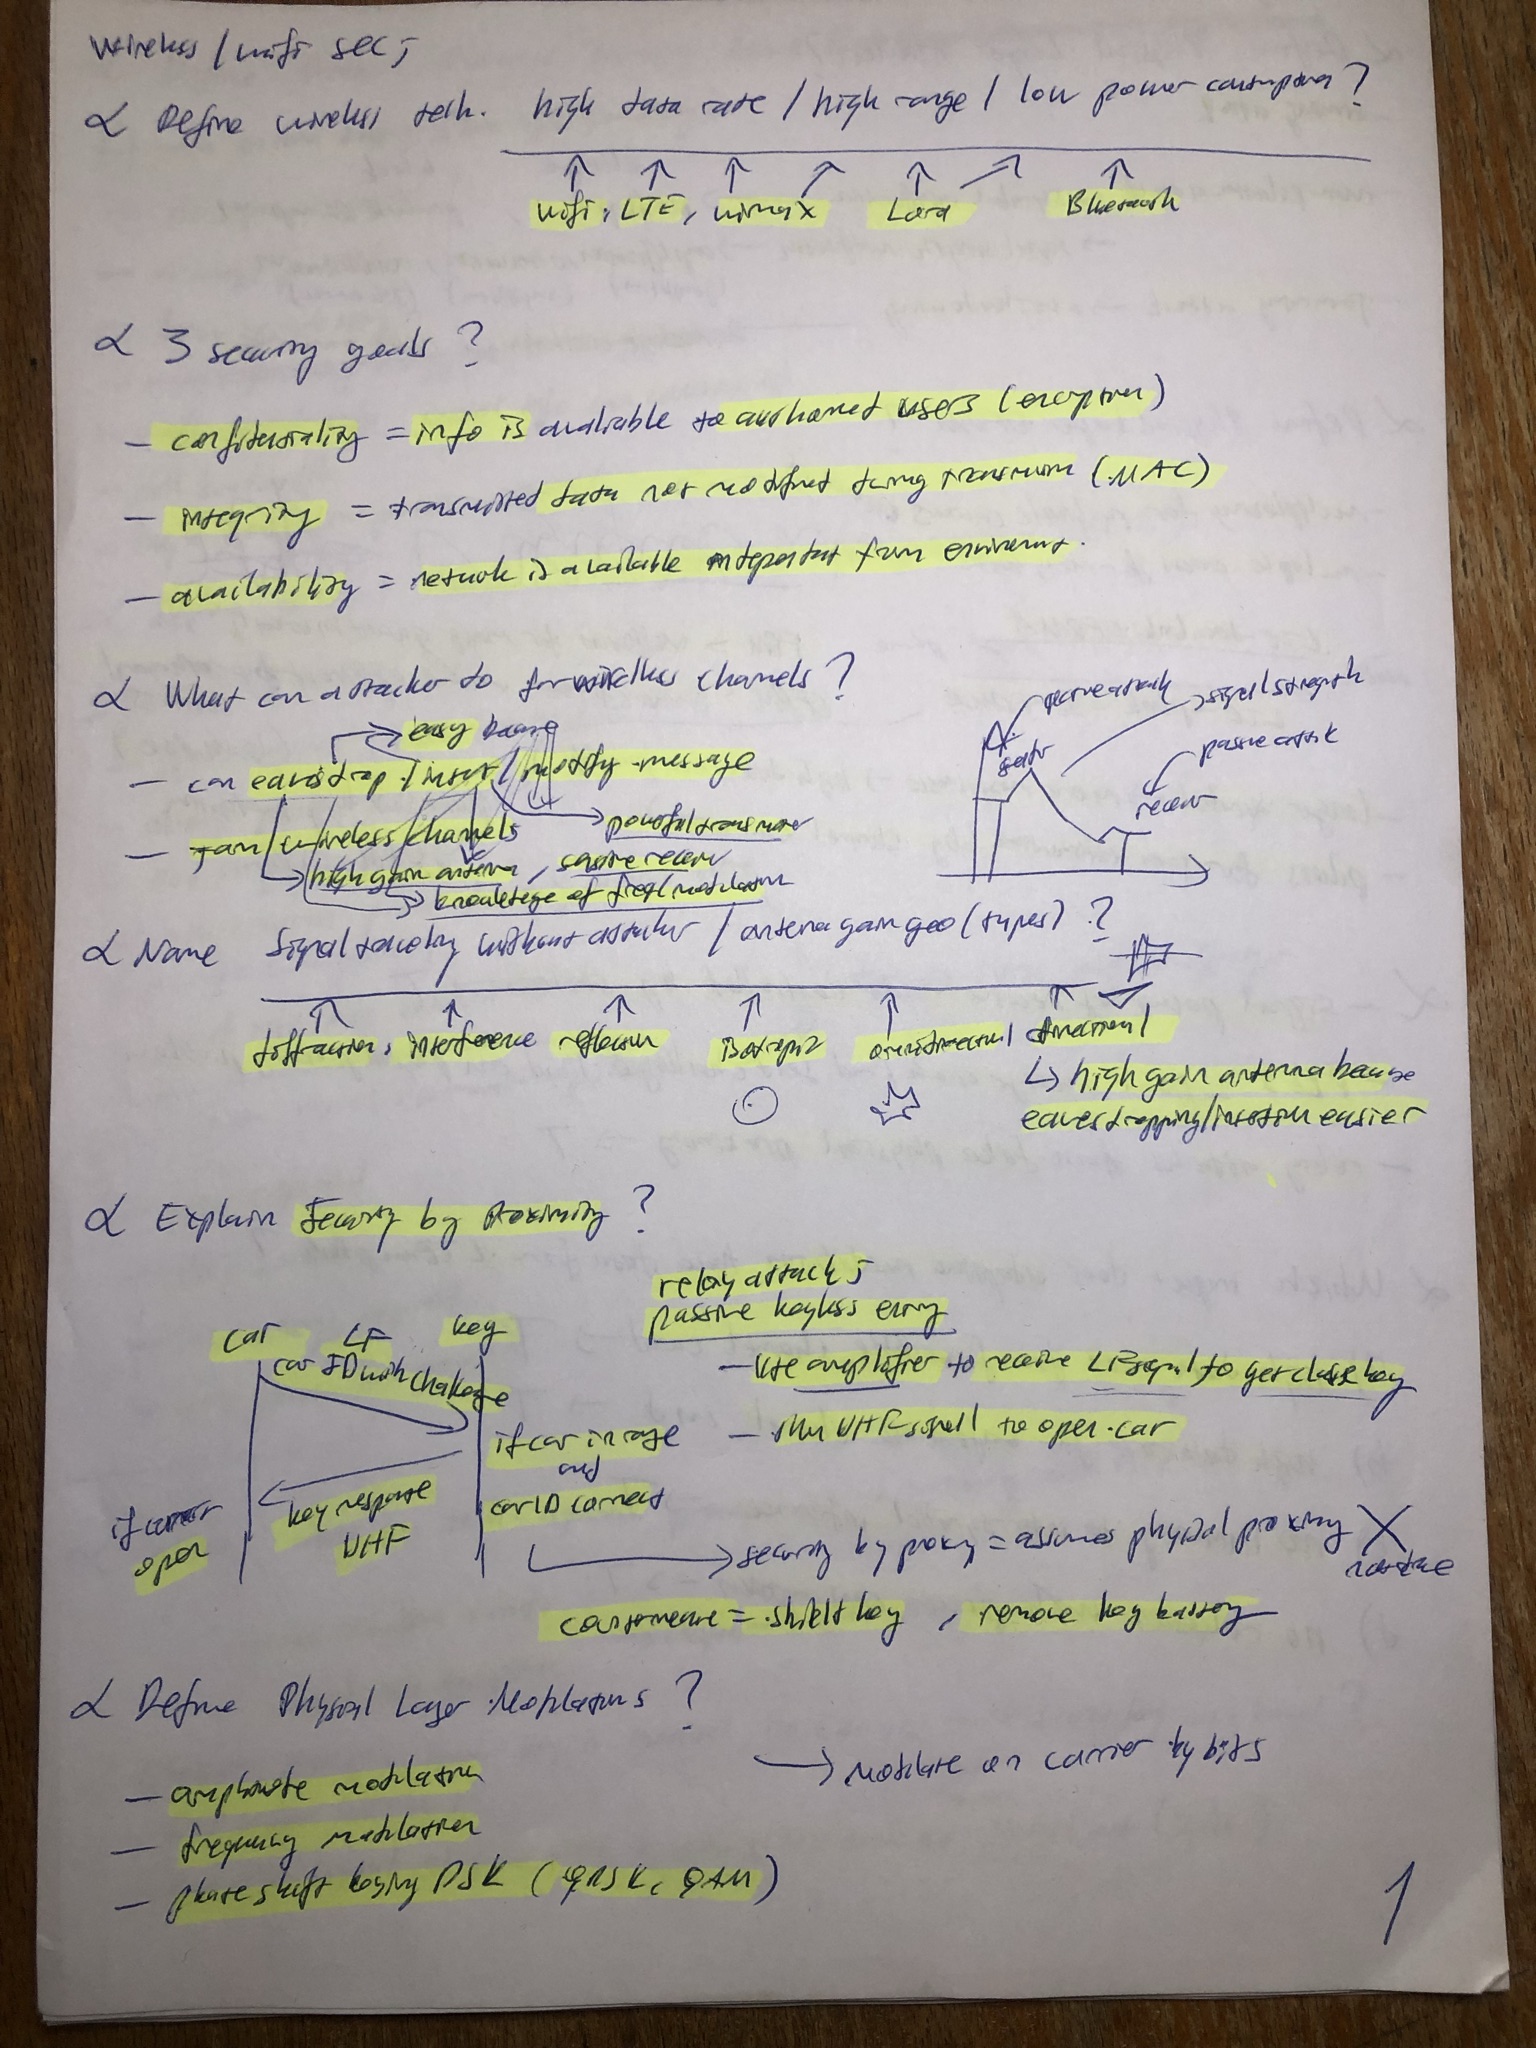 Wireless / wifi sec;
α Define wireless tech. high data rate / high range / low power consumption?
wifi, LTE, wimax Lora Bluetooth
α 3 security goals?
- confidentiality = info is available to authorized users (encryption)
- integrity = transmitted data not modified during transmission (MAC)
- availability = network is available independent from enviroment.
α What can attacker do for wireless channels?
easy because
- can eavesdrop / insert / modify message
powerful transmitter
- Jam wireless channels
high gain antenna, receiver
knowledge of freq / modulation
active attack
signal strength
passive attack
sender
receiver
α Name Signal without attacker / antenna gain geo (types)?
diffraction, interference reflection isotropic omnidirectional directional
↳ high gain antenna because
eavesdropping/insertion easier
α Explain Security by Proximity?
relay attack;
passive keyless entry
car LF key
car ID with challenge
- Use amplifier to receive LF signal to get close key
- UHF signal to open car
if car in range
and
car ID correct
key response
UHF
if correct
open
security by proxy = assumes physical proximity X
not true
countermeasure = shield key, remove key battery
α Define Physical Layer Modulations?
→ Modulate on carrier by bits
- amplitude modulation
- frequency modulation
- phase shift keying PSK (QPSK, QAM)
1